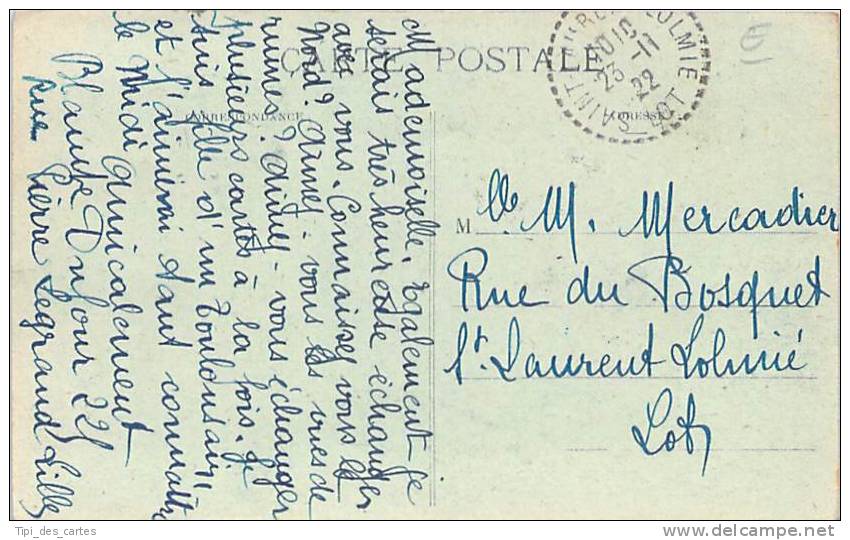 CARTE POSTALE
CORRESPONDANCE
ADRESSE
Mademoiselle. Egalement je
serais très heureuse échanger
avec vous. Connaissez vous le
Nord? Aimez-vous les vues de
ruines? Aimez-vous échanger
plusieurs cartes à la fois. Je
suis fille d'un Toulousain
et j'aimerai tant connaître
le Midi Amicalement
Blanche Dufour 225
Rue Pierre Legrand Lille
SAINT LAURENT LOLMIE
23 -11
22
LOT
M lle M. Mercadier
Rue du Bosquet
St. Laurent Lolmié
Lot
Tipi_des_cartes
www.delcampe.net